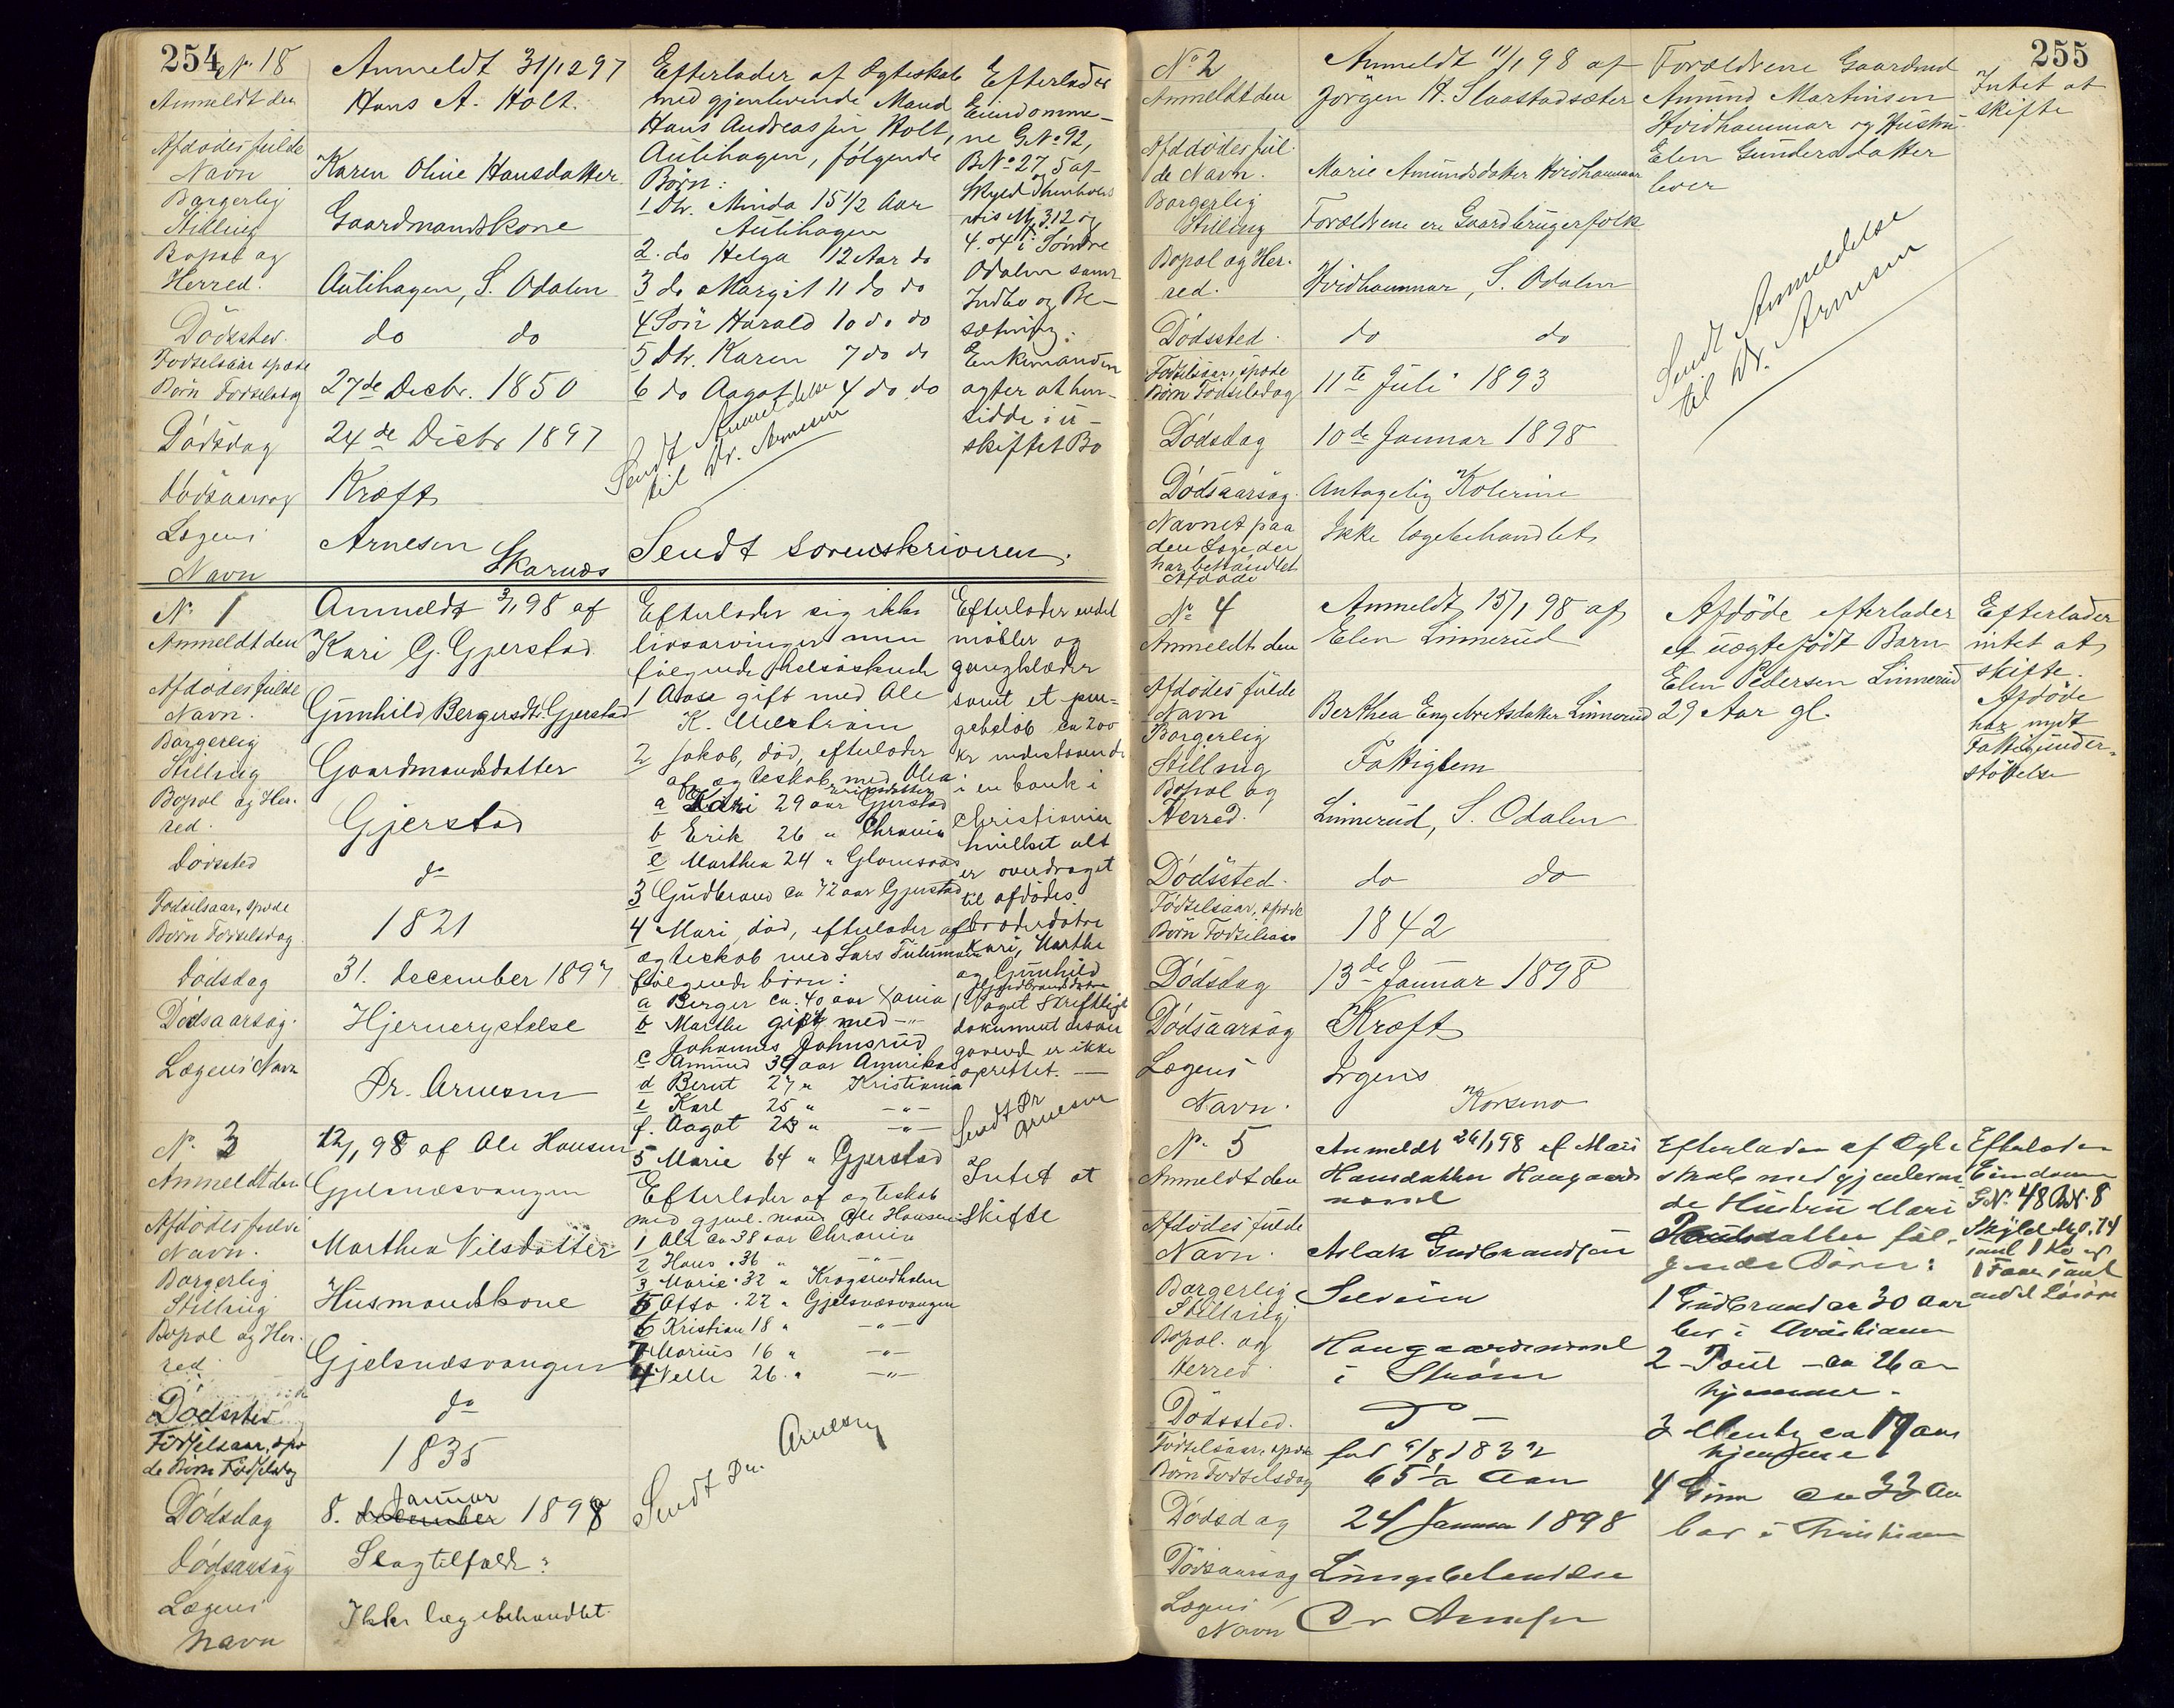 254
No. 18
Anmeldt den
Anmeldt 31/12 97
Hans A. Holt.
Afdødes fulde
Navn
Karen Oline Hansdatter
Borgerlig
Stilling
Gaardmandskone
Bopæl og
Herred.
Aulihagen, S. Odalen
Dødssted.
do do
Fødselsaar spæde
Børn Fødselsdag
27de Decbr. 1850
Dødsdag
24de Decbr 1897
Dødsaarsag
Kræft
Lægens
Navn
Arnesen
Skarnæs
Efterlader af Ægteskab
med gjenlevende Mand
Hans Andreassen Holt,
Aulihagen, følgende
Børn:
1 Dtr. Minda 15 1/2 Aar
Aulihagen
2. do Helga 12 Aar do
3 do Margit 11 do do
4 Søn Harald 10 do do
5 Dtr. Karen 7 do do
6 do Aagot 4 do do
Sendt Anmeldelse
til Dr. Arnesen
Sendt sorenskriveren.
Efterlader
Eiendomme-
ne G.No. 92,
B.No. 27 og 5 af
Skyld henholds
vis M. 3.12 og
4.04 i Søndre
Odalen samt
Indbo og Be-
sætning.
Enkemanden
agter at hen-
sidde i u-
skiftet Bo
No. 1
Anmeldt den
Anmeldt 3/1 98 af
Kari G. Gjerstad
Afdødes fulde
Navn.
Gunhild Bergersdtr. Gjerstad
Borgerlig
Stilling
Gaardmandsdatter
Bopæl og Her-
red.
Gjerstad
Dødssted
do
Fødselsaar, spæde
Børn Fødselsdag
1821
Dødsdag
31. december 1897
Dødsaarsag.
Hjernerystelse
Lægens Navn
Dr. Arnesen
Efterlader sig ikke
livsarvinger men
følgende helsøskende
1 Aase gift med Ole
K.
2 Jakob, død, efterlader
af ægteskab med Olea
Eriksdatter
a Kari 29 aar Gjerstad
b Erik 26 " Chrania
c Marthea 24 " Glomsaas
3 Gudbrand ca 72 aar Gjerstad
4 Mari, død, efterlader af
ægteskab med Lars
følgende børn:
a Berger ca. 40 aar Xania
b Marthe gift med -"-
Johannes Johnsrud
c Amund 30 aar Amerika
d Bernt 27 " Kristiania
e Karl 25 " -"-
f. Aagot 23 " -"-
5 Marie 64 " Gjerstad
Efterlader endel
møbler og
gangklæder
samt et pen-
gebeløb ca 200
kr indestaaende
i en bank i
Christiania
hvilket alt
er overdraget
til afdødes
broderdøtre
Kari, Marthe
og Gunhild
Gudbrandsdøtre
Noget skriftligt
dokument desan
gaaende er ikke
oprettet. —
Sendt Dr
Arnesen
No. 3
Anmeldt den
12/1 98 af Ole Hansen
Gjelsnæsvangen
Afdødes fulde
Navn.
Marthea Nilsdatter
Borgerlig
Stilling
Husmandskone
Bopæl og Her-
red.
Gjelsnæsvangen
Dødssted
do
Fødselsaar, spæ
de Børns Fødselsdag
1835
Dødsdag
Januar
8. december 1898
Dødsaarsag
Slagtilfælde?
Lægens
Navn
Ikke lægebehandlet.
Efterlader af ægteskab
med gjenl. mand Ole Hansen:
1 Ole ca 38 aar Chrania
2 Hans " 36 " -"-
3 Marie " 32 " Krogsrudholen
5 Otto " 22 " Gjelsnæsvangen
6 Kristian 18 " -"-
7 Marius 16 " -"-
4 Nelle 26 " -"-
Sendt Dr. Arnesen
Intet at
skifte
255
No 2
Anmeldt den
Anmeldt 11/1 98 af
Jørgen H. Slaastadsæter
Afdødes ful-
de Navn.
Marie Amundsdatter Hvidhammar
Borgerlig
Stilling
Forældrene ere Gaardbrugerfolk
Bopæl og Her-
red.
Hvidhammar, S. Odalen
Dødssted.
do do
Fødselsaar, spæde
Børn Fødselsdag
11te Juli 1893
Dødsdag
10de Januar 1898
Dødsaarsag.
Antagelig Kolerine
Navnet paa
den Læge der
har behandlet
Afdøde
Ikke lægebehandlet
Forældrene Gaardmd
Amund Martinsen
Hvidhammar og Hustru
Elen Gundersdatter
lever
Sendt Anmeldelse
til Dr. Arnesen
Intet at
skifte
No. 4
Anmeldt den
Anmeldt 15/1 98 af
Elen Linnerud
Afdødes fulde
Navn
Berthea Engebretsdatter Linnerud
Borgerlig
Stilling
Fattiglem
Bopæl og
Herred.
Linnerud, S. Odalen
Dødssted.
do do
Fødselsaar, spæde
Børn Fødselsaar
1842
Dødsdag
13de Januar 1898
Dødsaarsag
Kræft
Lægens
Navn.
Irgens
Korsmo
Afdøde efterlader
et uægtefødt Barn
Elen Pedersen Linnerud
29 Aar gl.
Efterlader
intet at
skifte.
Afdøde
har nydt
Fattigunder-
støttelse
No. 5
Anmeldt den
Anmeldt 26/1 98 af Mari
Hansdatter Haugaards
Afdødes fulde
Navn.
Aslak Gudbrandsen
Borgerlig
Stilling
Selveier
Bopæl. og
Herred
i Strøm
Dødssted.
Do —
Fødselsaar, spæde
Børn Fødselsdag
65 1/2 Aar
Dødsdag
24 Januar 1898
Dødsaarsag
Lungebetændelse
Lægens
Navn
Dr Arnesen
Efterlader af Ægte
skab med gjenleven
de Hustru Mari
datter føl-
gende Børn:
1 Gudbrand ca 30 aar
bor i
2 Paul ca 26 aar
hjemme.
3 ca 19 aar
hjemme.
4 ca 33 aar
bor i Christiania
Efterlader
Eiendom
G.No. 48 B.No. 8
Skyld M. 0,74
samt 1 Ko og
samt
endel Løsøre